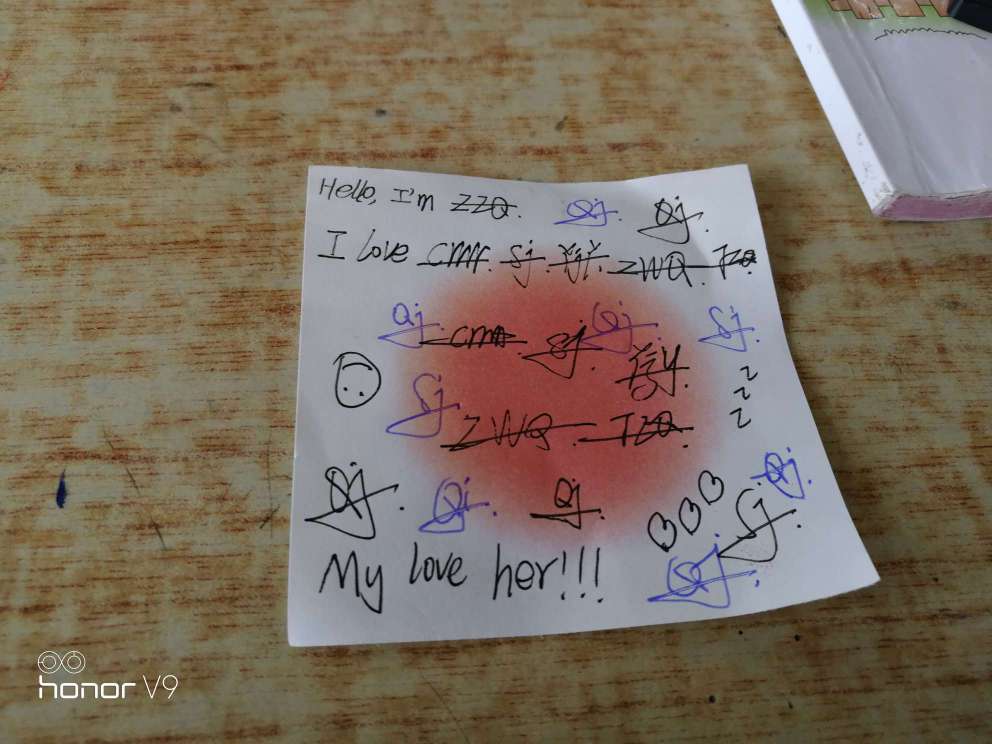 Hello, I'm ZZQ. Qj. Qj.
I love cmr. Sj. YjY. ZWQ. TZQ.
Qj. cmr Sj. Qj. Sj.
YjY.
Sj. ZWQ. TZQ.
z
z
z
Qj. Qj. Qj. Sj. Qj.
My love her!!! Qj.
honor V9